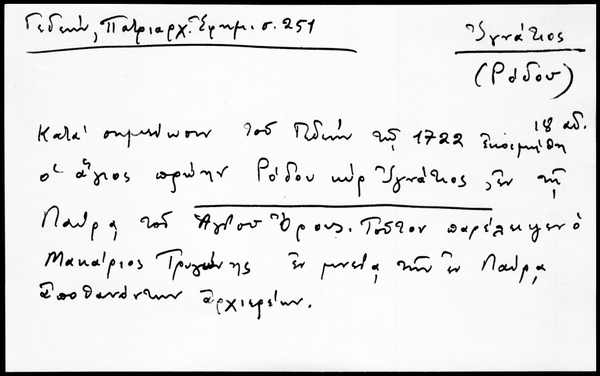 Γεδεών, Πατριαρχ. Ἐφημ. σ. 251
Ἰγνάτιος
(Ρόδου)
Κατά σημείωσιν τοῦ Γεδεών τῇ 1722 18 αὐ. ἐκοιμήθη
ὁ ἅγιος πρώην Ρόδου κύρ Ἰγνάτιος, ἐν τῇ
Λαύρᾳ τοῦ Ἁγίου Ὄρους. Τοῦτον παρέλειψεν ὁ
Μακάριος Τρυγώνης ἐν μνείᾳ τῶν ἐν Λαύρᾳ
ἀποθανόντων ἀρχιερέων.